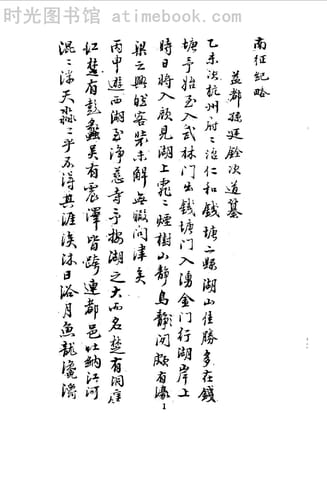 时光图书馆 - atimebook.com
南征紀略
益都孫廷銓次道纂
乙未次杭州府二治仁和錢塘二縣湖山佳勝多在錢
塘予始至入武林門出錢塘門入湧金門行湖岸上
時日將入顧見湖上靄二煙樹山靜鳥靜閒頗有濠
梁之興時客裝未解無暇問津矣
丙申遊西湖至淨慈寺予按湖之大而名楚有洞庭
江楚有彭蠡吳有震澤皆跨連都邑吐納江河
混二漭天淼二乎不得其涯涘沐日浴月魚龍
1
时光图书馆 - atimebook.com